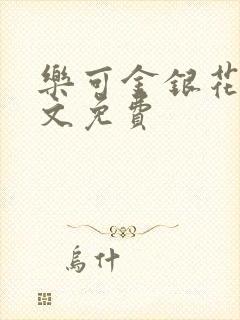 樂可金銀花
文免費
烏什